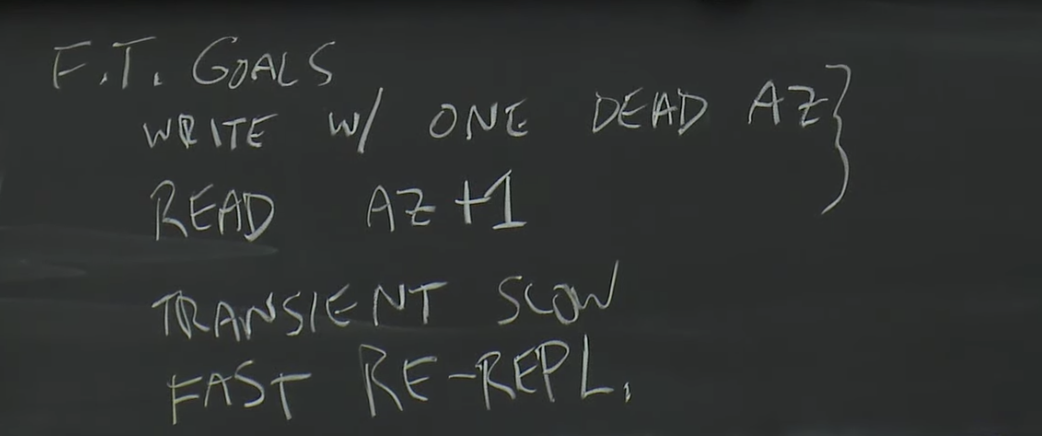 F.T. GOALS
WRITE W/ ONE DEAD AZ }
READ AZ+1
TRANSIENT SLOW
FAST RE-REPL.